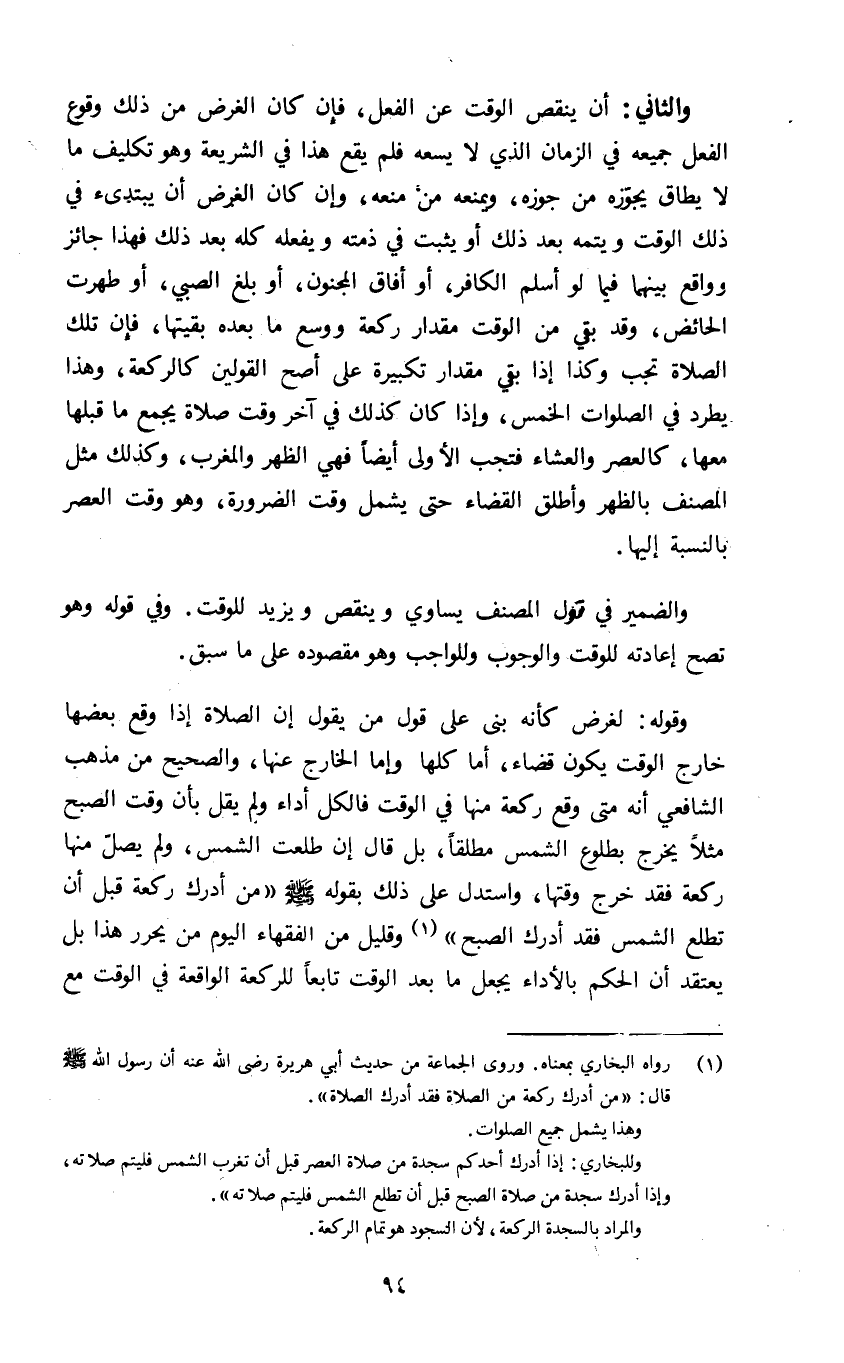 والثاني: أن ينقص الوقت عن الفعل، فإن كان الغرض من ذلك وقوع
الفعل جميعه في الزمان الذي لا يسعه فلم يقع هذا في الشريعة وهو تكليف ما
لا يطاق يجوّزه من جوزه، ويمنعه من منعه، وإن كان الغرض أن يبتدىء في
ذلك الوقت ويتمه بعد ذلك أو يثبت في ذمته ويفعله كله بعد ذلك فهذا جائز
وواقع بينهما فيما لو أسلم الكافر، أو أفاق المجنون، أو بلغ الصبي، أو طهرت
الحائض، وقد بقي من الوقت مقدار ركعة ووسع ما بعده بقيتها، فإن تلك
الصلاة تجب وكذا إذا بقي مقدار تكبيرة على أصح القولين كالركعة، وهذا
يطرد في الصلوات الخمس، وإذا كان كذلك في آخر وقت صلاة يجمع ما قبلها
معها، كالعصر والعشاء فتجب الأولى أيضاً فهي الظهر والمغرب، وكذلك مثل
المصنف بالظهر وأطلق القضاء حتى يشمل وقت الضرورة، وهو وقت العصر
بالنسبة إليها.
والضمير في قول المصنف يساوي وينقص ويزيد للوقت. وفي قوله وهو
تصح إعادته للوقت والوجوب وللواجب وهو مقصوده على ما سبق.
وقوله: لغرض كأنه بنى على قول من يقول إن الصلاة إذا وقع بعضها
خارج الوقت يكون قضاء، أما كلها وإما الخارج عنها، والصحيح من مذهب
الشافعي أنه متى وقع ركعة منها في الوقت فالكل أداء ولم يقل بأن وقت الصبح
مثلاً يخرج بطلوع الشمس مطلقاً، بل قال إن طلعت الشمس، ولم يصلّ منها
ركعة فقد خرج وقتها، واستدل على ذلك بقوله ﷺ «من أدرك ركعة قبل أن
تطلع الشمس فقد أدرك الصبح» (١) وقليل من الفقهاء اليوم من يحرر هذا بل
يعتقد أن الحكم بالأداء يجعل ما بعد الوقت تابعاً للركعة الواقعة في الوقت مع
(١) رواه البخاري بمعناه. وروى الجماعة من حديث أبي هريرة رضى الله عنه أن رسول الله ﷺ
قال: «من أدرك ركعة من الصلاة فقد أدرك الصلاة».
وهذا يشمل جميع الصلوات.
وللبخاري: إذا أدرك أحدكم سجدة من صلاة العصر قبل أن تغرب الشمس فليتم صلاته،
وإذا أدرك سجدة من صلاة الصبح قبل أن تطلع الشمس فليتم صلاته».
والمراد بالسجدة الركعة، لأن السجود هو تمام الركعة.
٩٤